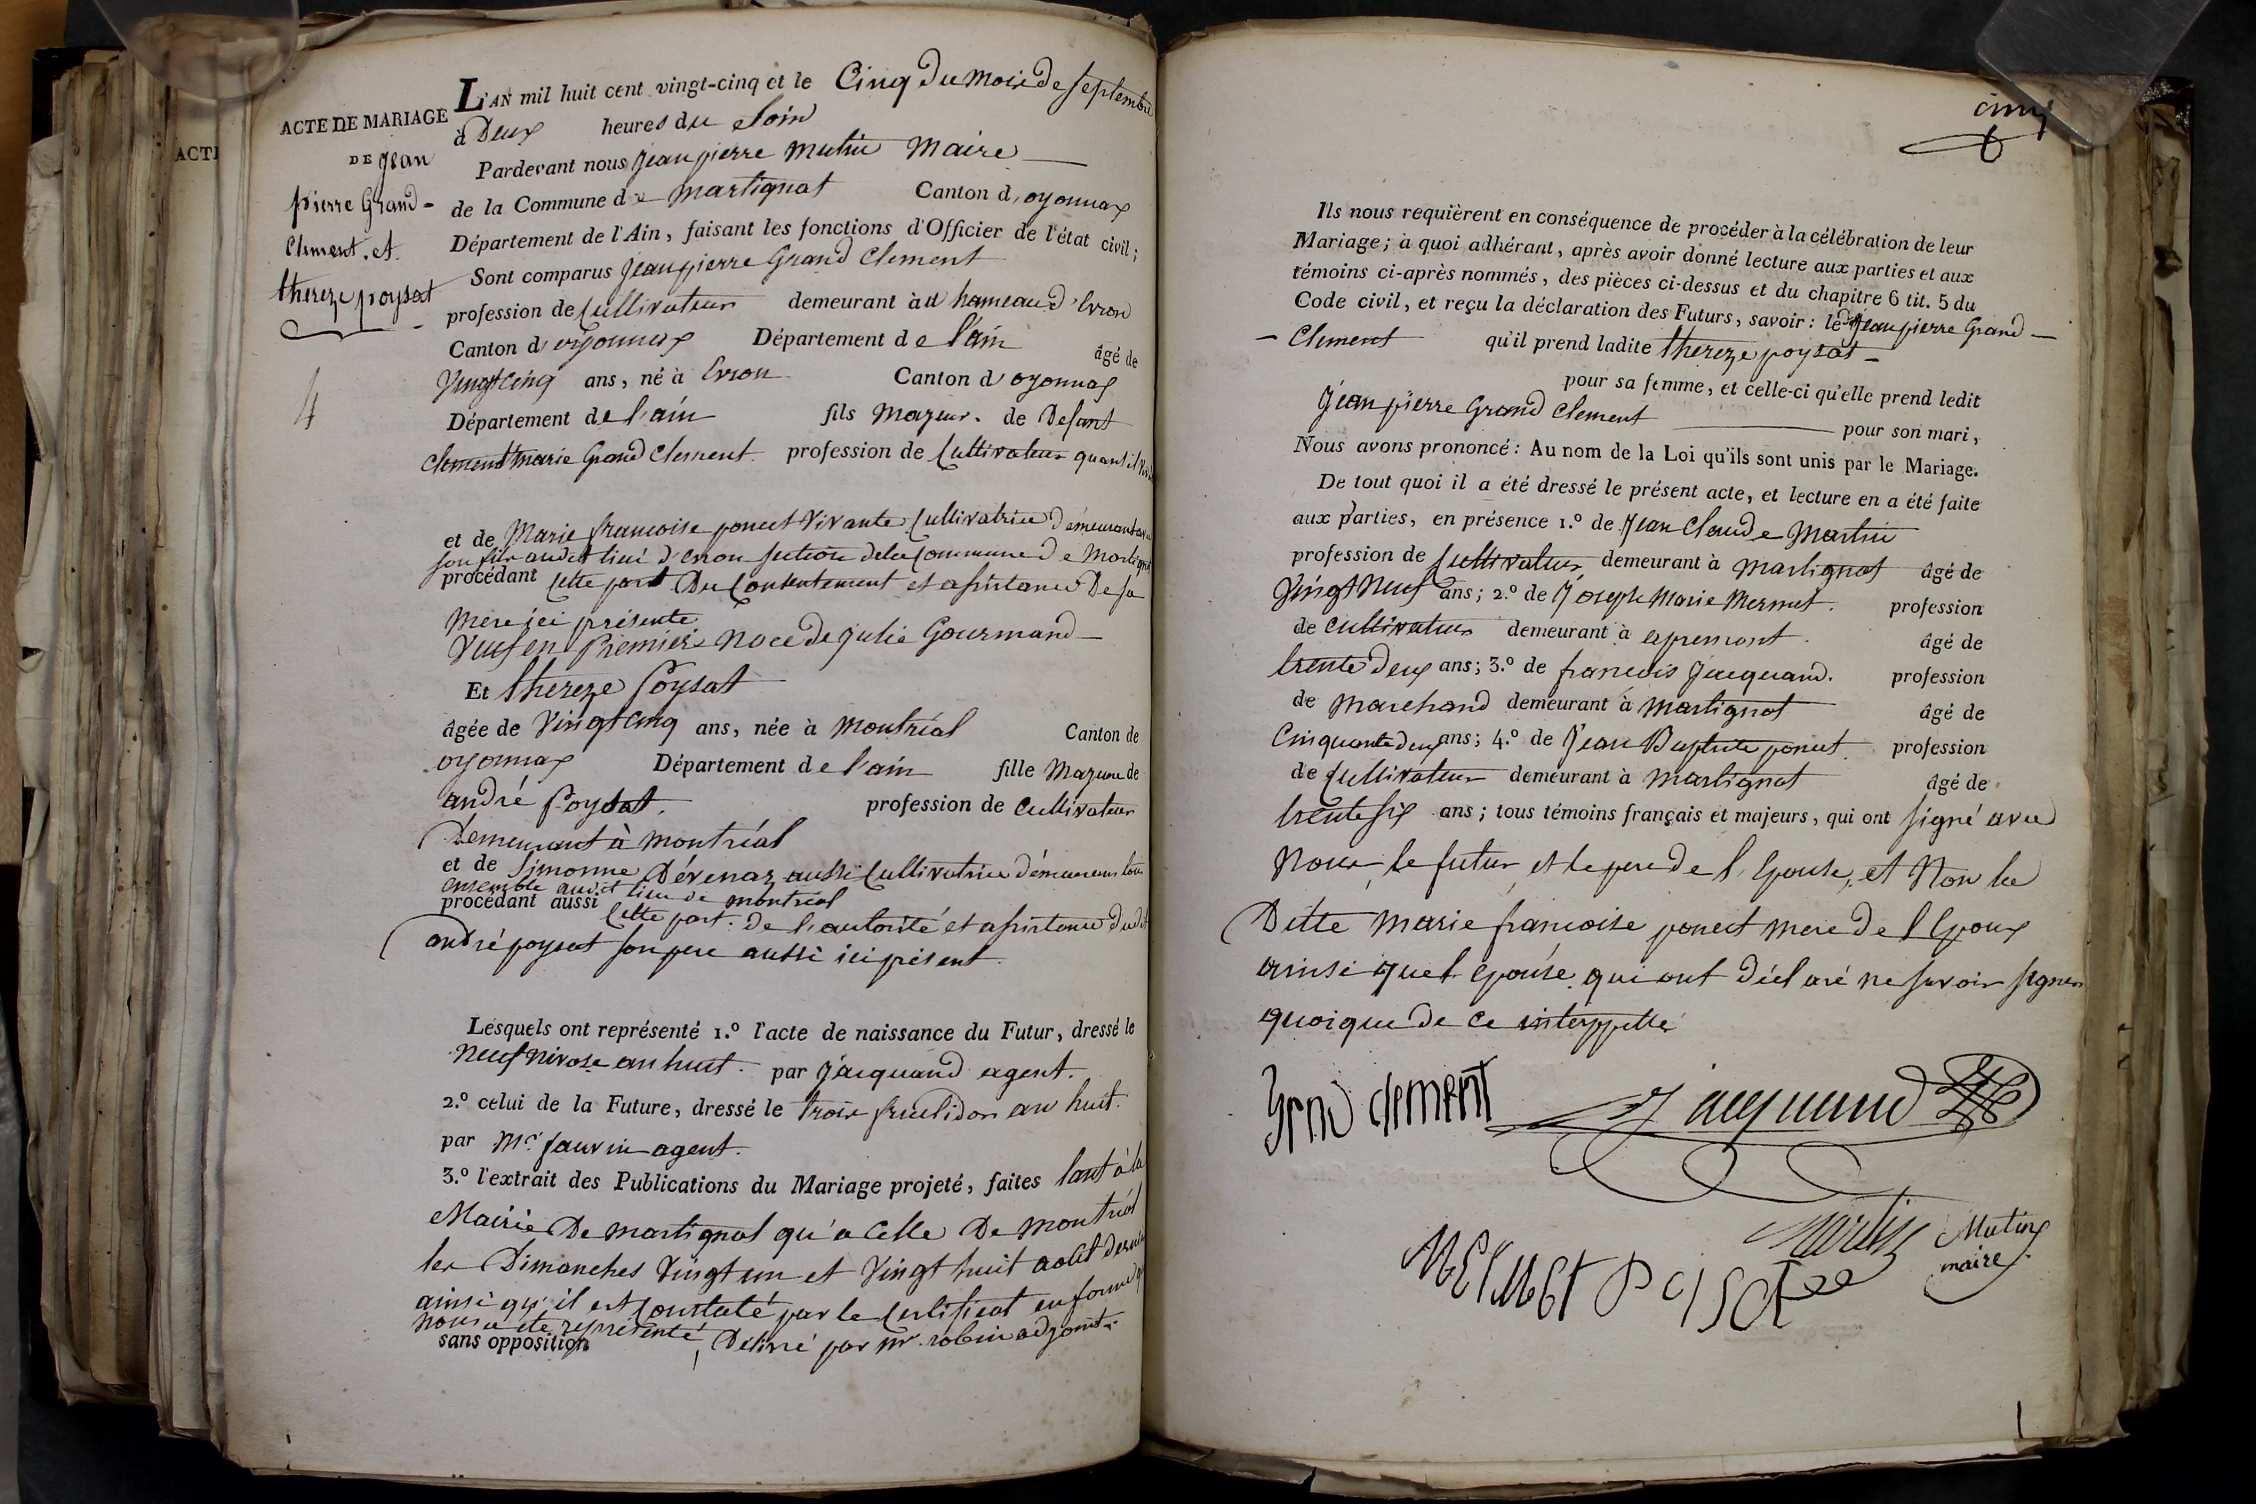 ACTE DE MARIAGE
DE Jean
pierre Grand-
Clement. et
thereze poysat
4
ACT
L'AN mil huit cent vingt-cinq et le Cinq Du mois De septembre
à Deux heures du Soir
Pardevant nous Jean pierre Mutin Maire
de la Commune de martignat Canton d'oyonnax
Département de l'Ain, faisant les fonctions d'Officier de l'état civil;
Sont comparus Jean pierre Grand Clement
profession de Cultivateur demeurant àu hameau d'Evron
Canton d'oyonnax Département de l'ain âgé de
Vingt Cinq ans, né à Evron Canton d'oyonnax
Département de l'ain fils Mazeur. de Defunt
Clement Marie Grand Clement. profession de Cultivateur quant il
et de Marie francoise poncet Vivante Cultivatrice Démeurant
son fils audit lieu d'Evron section dela Commune De Martignat
procédant Cette part Du Consentement et assistance De sa
Mere ici présente
Veuf en Premiere Noce De julie Gourmand
Et thereze Poysat
âgée de Vingt Cinq ans, née à Montréal Canton de
oyonnax Département de l'ain fille Mazeure de
andré Poysat. profession de Cultivateur
Demeurant à montréal
et de Simonne Dévenaz aussi Cultivatrice Démeurans tous
ensemble audit lieu de montréal
procédant aussi Cette part. De l'autorité et assistance Dudit
andré poysat son pere aussi ici présent.
Lesquels ont représenté 1.º l'acte de naissance du Futur, dressé le
Neuf Nivose an huit. par Jacquand agent.
2.º celui de la Future, dressé le trois fructidor an huit.
par Mr. Jauvin agent.
3.º l'extrait des Publications du Mariage projeté, faites tant à la
Mairie De martignat qu'a Celle De montréal
les Dimanches Vingt un et Vingt huit août dernier
ainsi qu'il est Constaté par le Certificat en forme qui
nous a été représenté, Délivré par mr. robin adjoint.
sans opposition
cinq
Ils nous requièrent en conséquence de procéder à la célébration de leur
Mariage; à quoi adhérant, après avoir donné lecture aux parties et aux
témoins ci-après nommés, des pièces ci-dessus et du chapitre 6 tit. 5 du
Code civil, et reçu la déclaration des Futurs, savoir: ledt Jean pierre Grand-
-Clement qu'il prend ladite thereze poysat-
pour sa femme, et celle-ci qu'elle prend ledit
Jean pierre Grand Clement pour son mari,
Nous avons prononcé: Au nom de la Loi qu'ils sont unis par le Mariage.
De tout quoi il a été dressé le présent acte, et lecture en a été faite
aux parties, en présence 1.º de Jean Claude Martin
profession de Cultivateur demeurant à Martignat âgé de
Vingt Neuf ans; 2.º de Joseph Marie Mermet. profession
de Cultivateur demeurant à apremont. âgé de
trente Deux ans; 3.º de francois Jacquand. profession
de Marchand demeurant à Martignat âgé de
Cinquante deux ans; 4.º de Jean Baptiste poncet. profession
de Cultivateur demeurant à Martignat âgé de
trente six ans; tous témoins français et majeurs, qui ont signé avec
Nous, le futur, et le pere de l'Epouse, et Non la
Ditte Marie francoise poncet mere De l'Epoux
ainsi que l'epouse qui ont déclaré ne savoir signer
quoique De ce interppellé
Grand clement Jacquand
MERMET POISAt Martin Mutin
maire